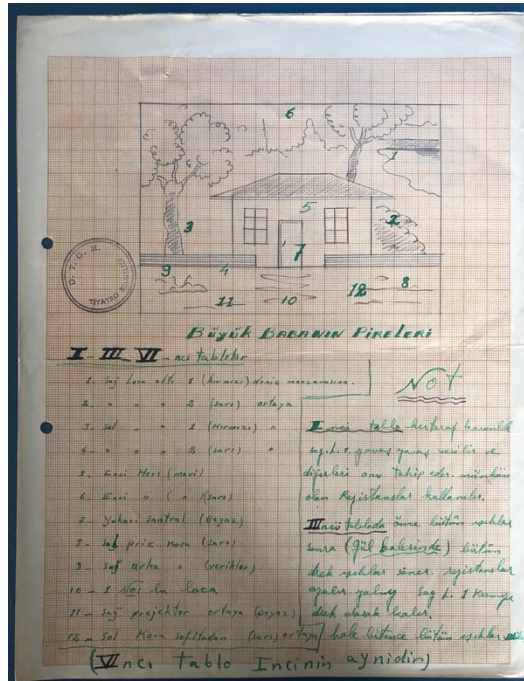 6
1
3
5
2
7
9
4
8
11
10
12
D. T. G. M.
TİYATRO
BÜYÜK BABANIN PİRELERİ
I - III - VI - ncı tablolar
1. Sağ Loca altı 1 (Kırmızı) deniz manzarasına.
2. " " " 2 (sarı) ortaya
3. Sol " " 1 (Kırmızı) "
4. " " " 2 (sarı) "
5. Hers (mavi)
6. " ( " ) (sarı)
7. Yukarı santral (beyaz)
8 - sol priz Kosa (sarı)
9 - sağ Arka "
10 - 1 No lu loca
11 - sağ projektör ortaya (beyaz)
12 - Sol Kora sofitadan (sarı) ortaya
(VIncı tablo Incinin aynidir)
NOT
I inci tablo her taraf karanlık
sağ. L. 1 yavaş yavaş verilir ve
diğerleri onu takip eder. mümkün
olan Rejistanslar kullanılır.
III ncü tabloda önce bütün ışıklar
sonra (Gül balesinde) bütün
direk ışıklar söner. rejistanslar
azalır yalnız Sağ L. 1 Kırmızı
direk olarak kalır.
bale bitince bütün ışıklar